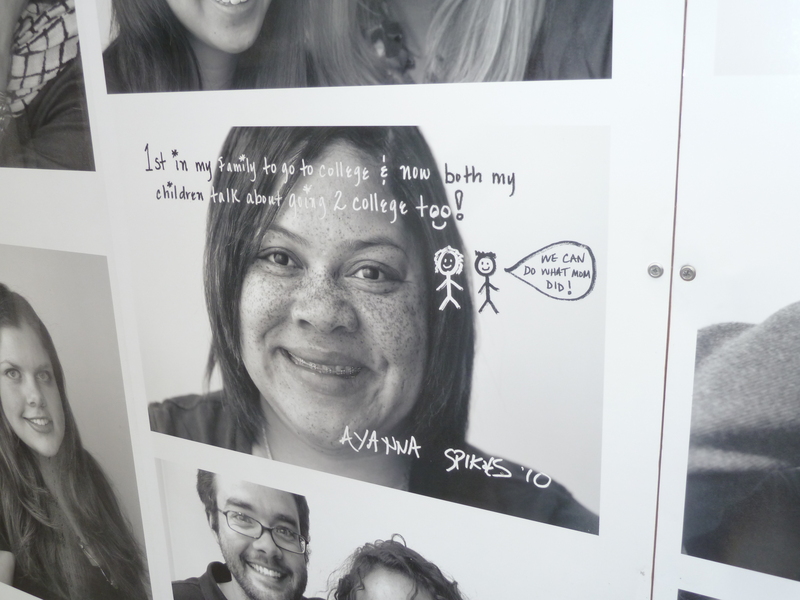 1st in my family to go to college & now both my
children talk about going 2 college too!
WE CAN
DO WHAT MOM
DID!
AYANNA SPIKES '10